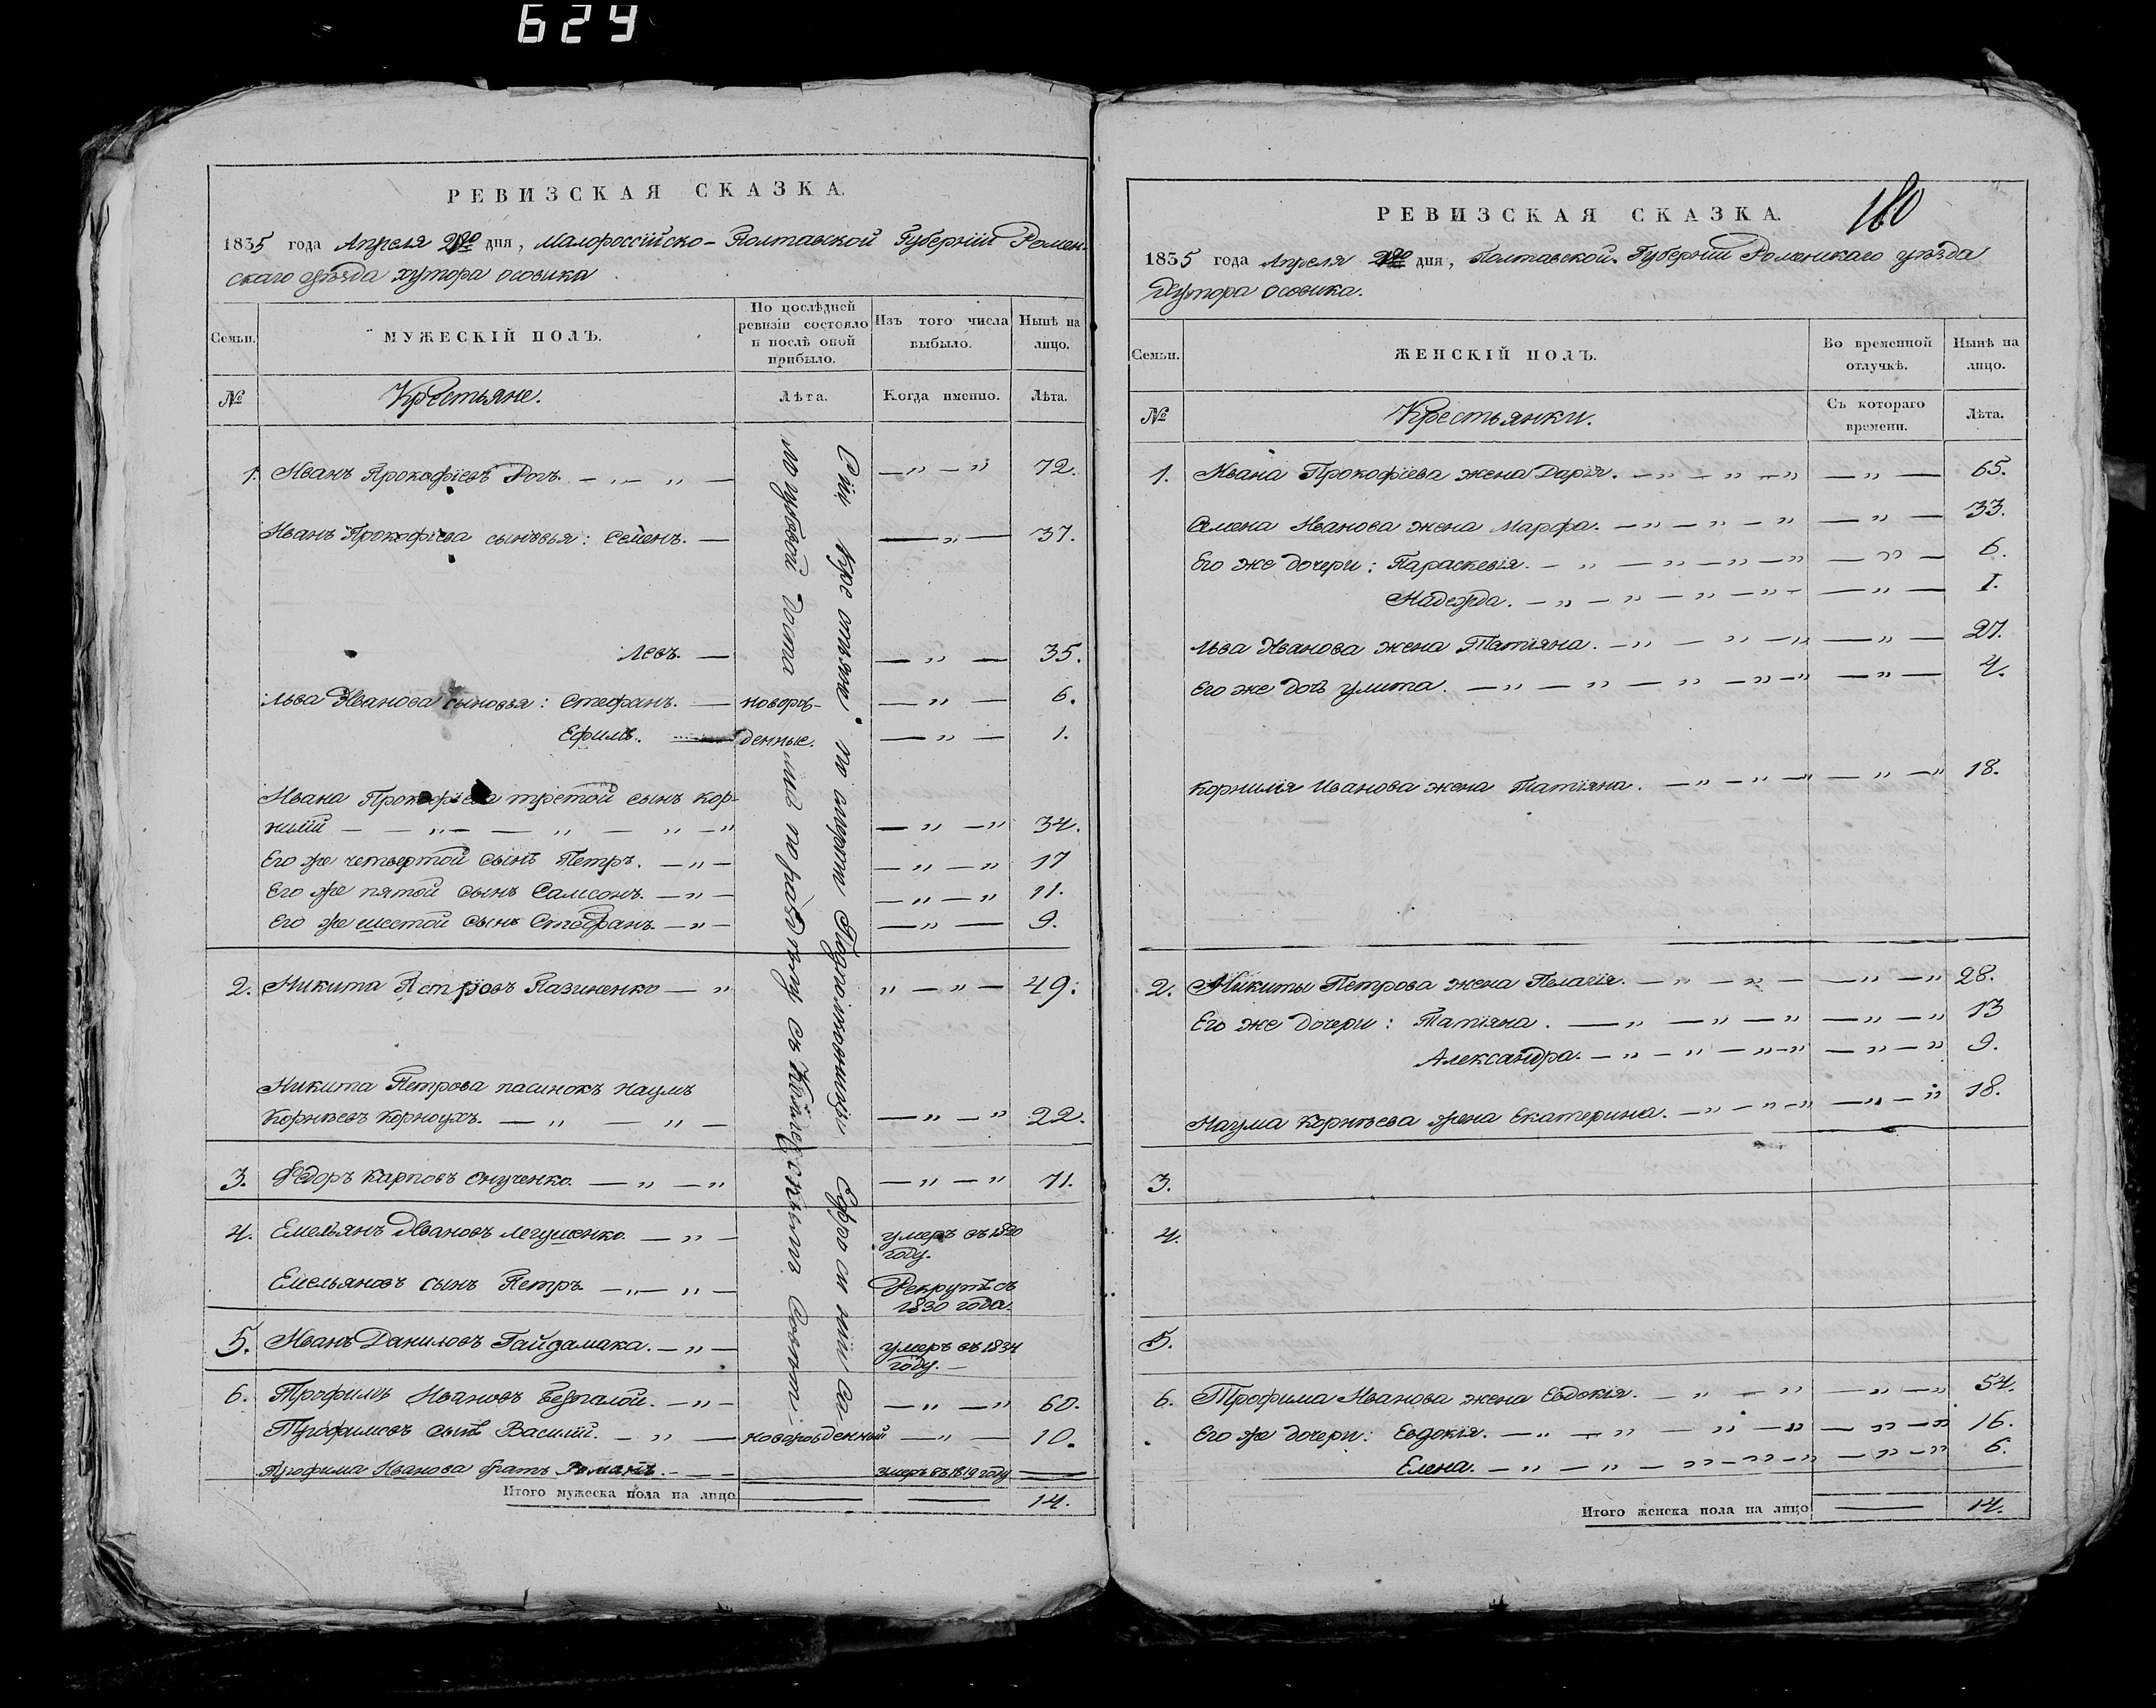 629
РЕВИЗСКАЯ СКАЗКА.
1835 года Апреля дня, Малороссійско-Полтавской Губерніи Ромен-
скаго уѣзда хутора Осовика
Семьи.
МУЖЕСКІЙ ПОЛЪ.
По послѣдней ревизіи состояло и послѣ оной прибыло.
Изъ того числа выбыло.
Нынѣ на лицо.
№
Крестьяне.
Лѣта.
Когда именно.
Лѣта.
Сіи Крестьяне по смерти
1. Иванъ Прокофіевъ Рогъ. — „ — „ — — „ — „ 72.
Иванъ Прокофіева сыновья: Семенъ. — — „ — 37.
Левъ. — — „ — 35.
Льва Иванова сыновья: Стефанъ. — новорож- — „ — 6.
Ефимъ. — денные. — „ — 1.
Ивана Прокофіева третой сынъ Кор-
нилій — — „ — — „ — „ — „ — „ — „ 34.
Его же четвертой сынъ Петръ. — „ — — „ — „ 17
Его же пятой сынъ Самсонъ. — „ — — „ — „ 11.
Его же шестой сынъ Стефанъ. — „ — — „ — 9.
2. Никита Петровъ Пазиненко — „ „ — „ — 49.
Никита Петрова пасинокъ Наумъ
Корнѣевъ Корноухъ. — „ — „ — — „ — „ 22.
3. Федоръ Карповъ Снученко. — „ — „ — „ — „ 71.
4. Емельянъ Ивановъ — „ — умеръ въ 1820
году.
Емельяновъ сынъ Петръ. — „ — „ — Рекрутъ съ
1830 года.
5. Иванъ Даниловъ Гайдамака. — „ — умеръ въ 1834
году. —
6. Трофимъ Ивановъ Безпалой. — „ — — „ — „ 60.
Трофимовъ сынъ Василій. — „ — новорожденный — „ — 10.
Трофима Иванова братъ Романъ. — — умеръ въ 1819 году —
Итого мужеска пола на лицо — — 14.
180
РЕВИЗСКАЯ СКАЗКА.
1835 года Апреля дня, Полтавской Губерніи Роменскаго уѣзда
Хутора Осовика.
Семьи.
ЖЕНСКІЙ ПОЛЪ.
Во временной отлучкѣ.
Нынѣ на лицо.
№
Крестьянки.
Съ котораго времени.
Лѣта.
1. Ивана Прокофіева жена Дарія. — „ — „ — „ — „ — 65.
Семена Иванова жена Марфа. — „ — „ — „ — „ — 33.
Его же дочери: Параскевія. — „ — „ — „ — „ — „ — 6.
Надежда. — „ — „ — „ — „ — — „ — 1.
Льва Иванова жена Татіяна. — „ — „ — „ — „ — 27.
Его же дочь Улита. — „ — „ — „ — „ — „ — „ — 4.
Корнилія Иванова жена Татіяна. — „ — „ — „ — „ — „ 18.
2. Никиты Петрова жена Пелагія. — „ — „ — — „ — „ 28.
Его же дочери: Татіяна. — „ — „ — „ — „ — „ 13
Александра. — „ — „ — „ — „ — „ — „ 9.
Наума Корнѣева жена Екатерина. — „ — „ — „ — „ — „ 18.
3.
4.
5.
6. Трофима Иванова жена Евдокія. — „ — „ — „ — „ 54.
Его же дочери: Евдокія. — „ — „ — „ — „ — „ — „ 16.
Елена. — „ — „ — „ — „ — „ — „ — „ 6.
Итого женска пола на лицо — 14.